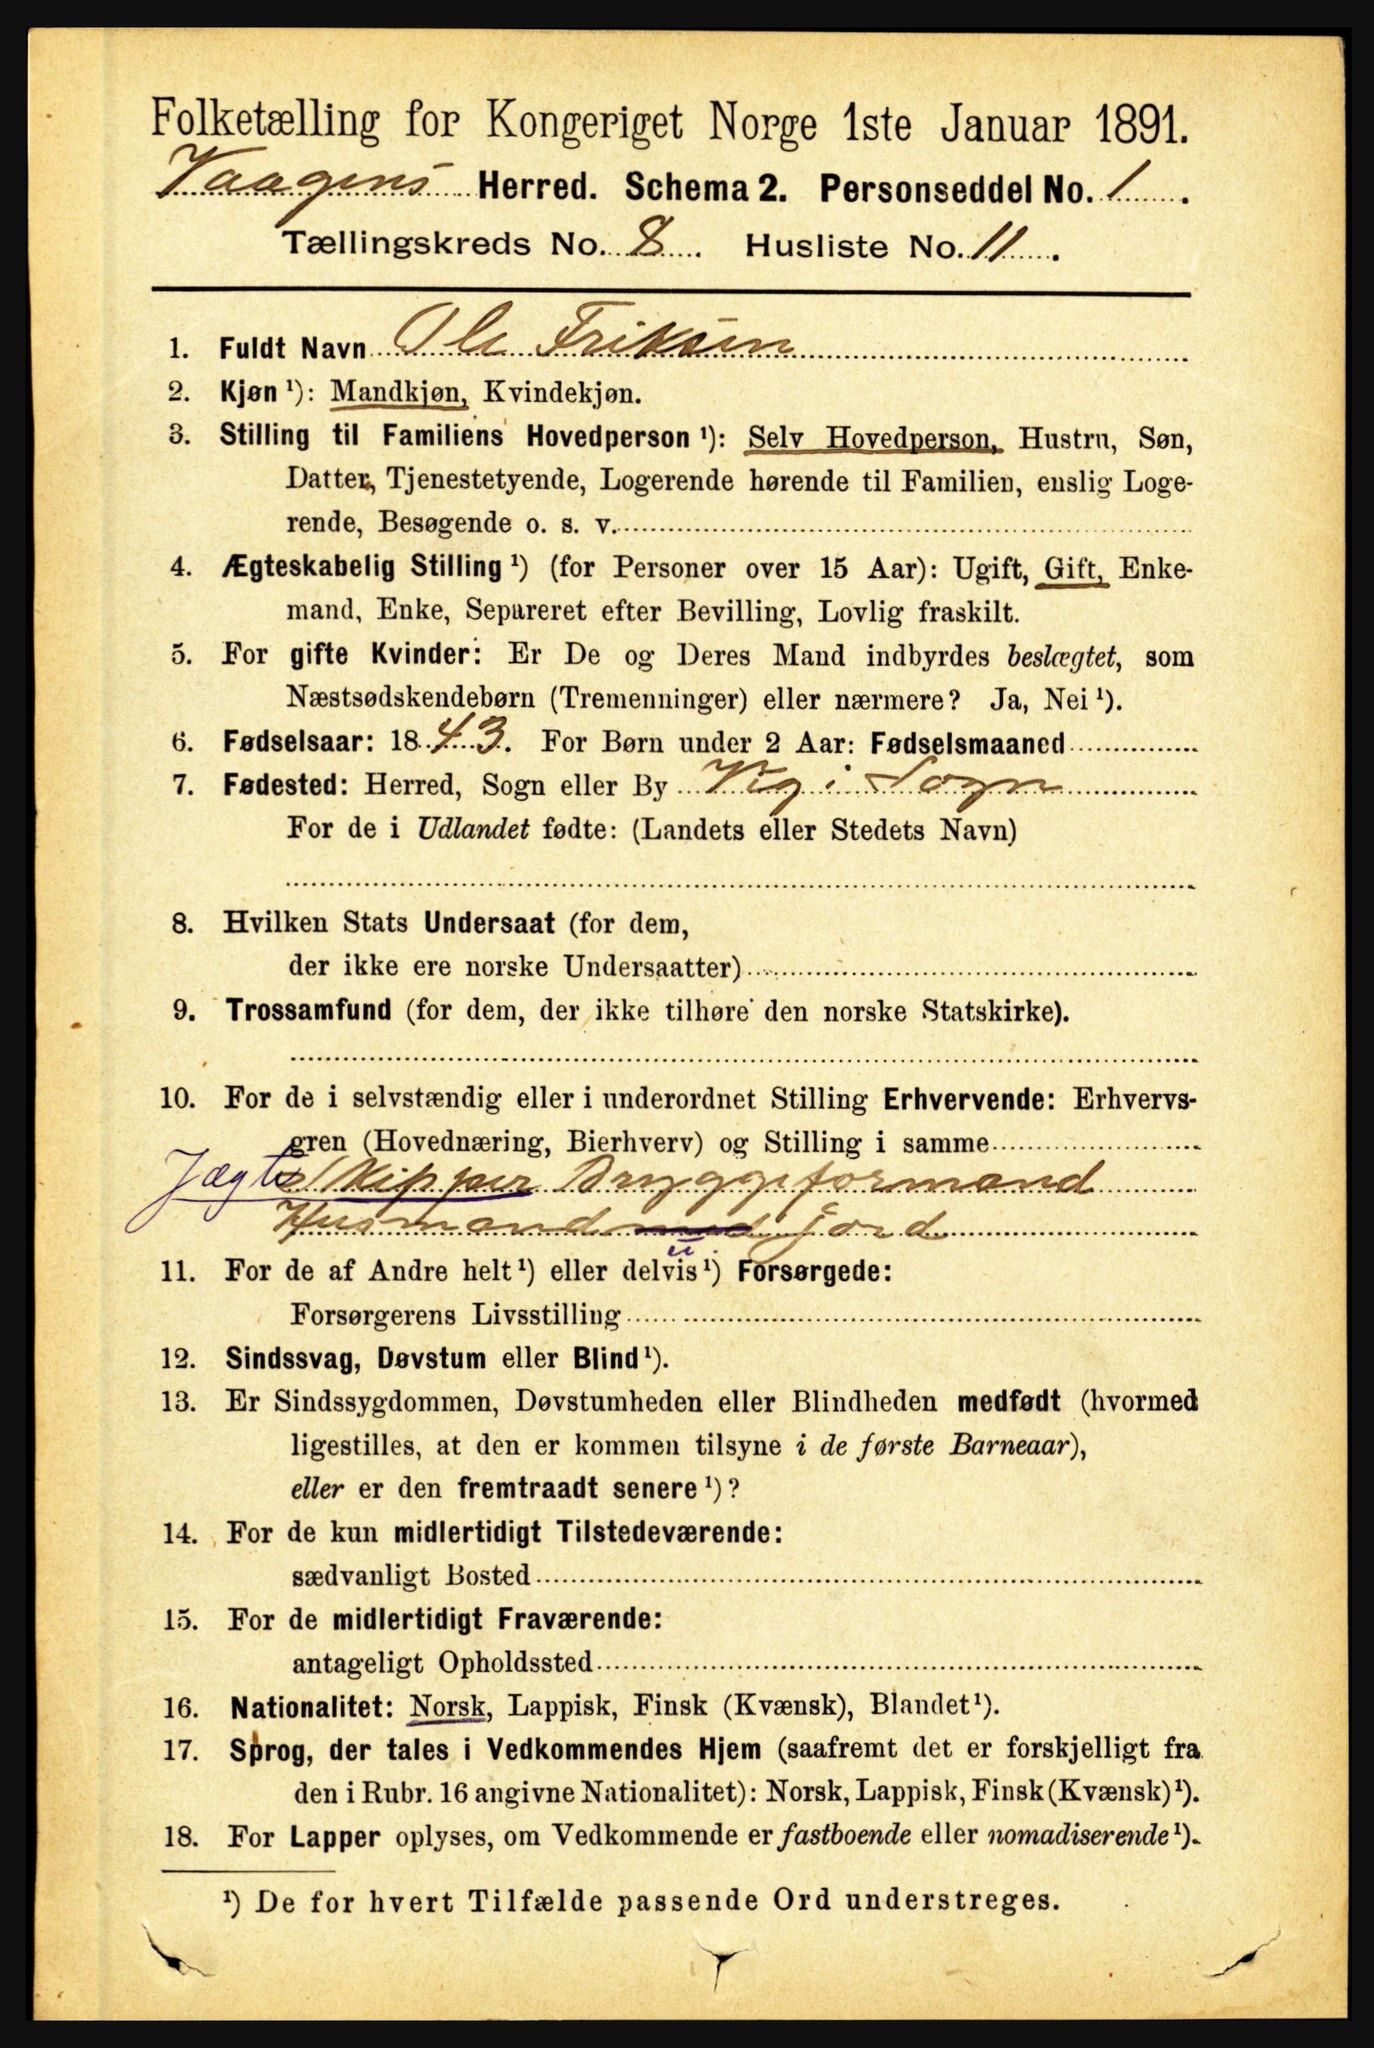 Folketælling for Kongeriget Norge 1ste Januar 1891.
Vaagens Herred. Schema 2. Personseddel No. 1.
Tællingskreds No. 8. Husliste No. 11.
1. Fuldt Navn Ole Friksen
2. Kjøn ¹): Mandkjøn, Kvindekjøn.
3. Stilling til Familiens Hovedperson ¹): Selv Hovedperson, Hustru, Søn,
Datter, Tjenestetyende, Logerende hørende til Familien, enslig Loge-
rende, Besøgende o. s. v.
4. Ægteskabelig Stilling ¹) (for Personer over 15 Aar): Ugift, Gift, Enke-
mand, Enke, Separeret efter Bevilling, Lovlig fraskilt.
5. For gifte Kvinder: Er De og Deres Mand indbyrdes beslægtet, som
Næstsødskendebørn (Tremenninger) eller nærmere? Ja, Nei ¹).
6. Fødselsaar: 1843. For Børn under 2 Aar: Fødselsmaaned
7. Fødested: Herred, Sogn eller By Vig i Sogn
For de i Udlandet fødte: (Landets eller Stedets Navn)
8. Hvilken Stats Undersaat (for dem,
der ikke ere norske Undersaatter)
9. Trossamfund (for dem, der ikke tilhøre den norske Statskirke).
10. For de i selvstændig eller i underordnet Stilling Erhvervende: Erhvervs-
gren (Hovednæring, Bierhverv) og Stilling i samme
Jægte Skipper Bryggeformand
Husmand med jord
u
11. For de af Andre helt ¹) eller delvis ¹) Forsørgede:
Forsørgerens Livsstilling
12. Sindssvag, Døvstum eller Blind ¹).
13. Er Sindssygdommen, Døvstumheden eller Blindheden medfødt (hvormed
ligestilles, at den er kommen tilsyne i de første Barneaar),
eller er den fremtraadt senere ¹)?
14. For de kun midlertidigt Tilstedeværende:
sædvanligt Bosted
15. For de midlertidigt Fraværende:
antageligt Opholdssted
16. Nationalitet: Norsk, Lappisk, Finsk (Kvænsk), Blandet ¹).
17. Sprog, der tales i Vedkommendes Hjem (saafremt det er forskjelligt fra
den i Rubr. 16 angivne Nationalitet): Norsk, Lappisk, Finsk (Kvænsk) ¹).
18. For Lapper oplyses, om Vedkommende er fastboende eller nomadiserende ¹).
¹) De for hvert Tilfælde passende Ord understreges.